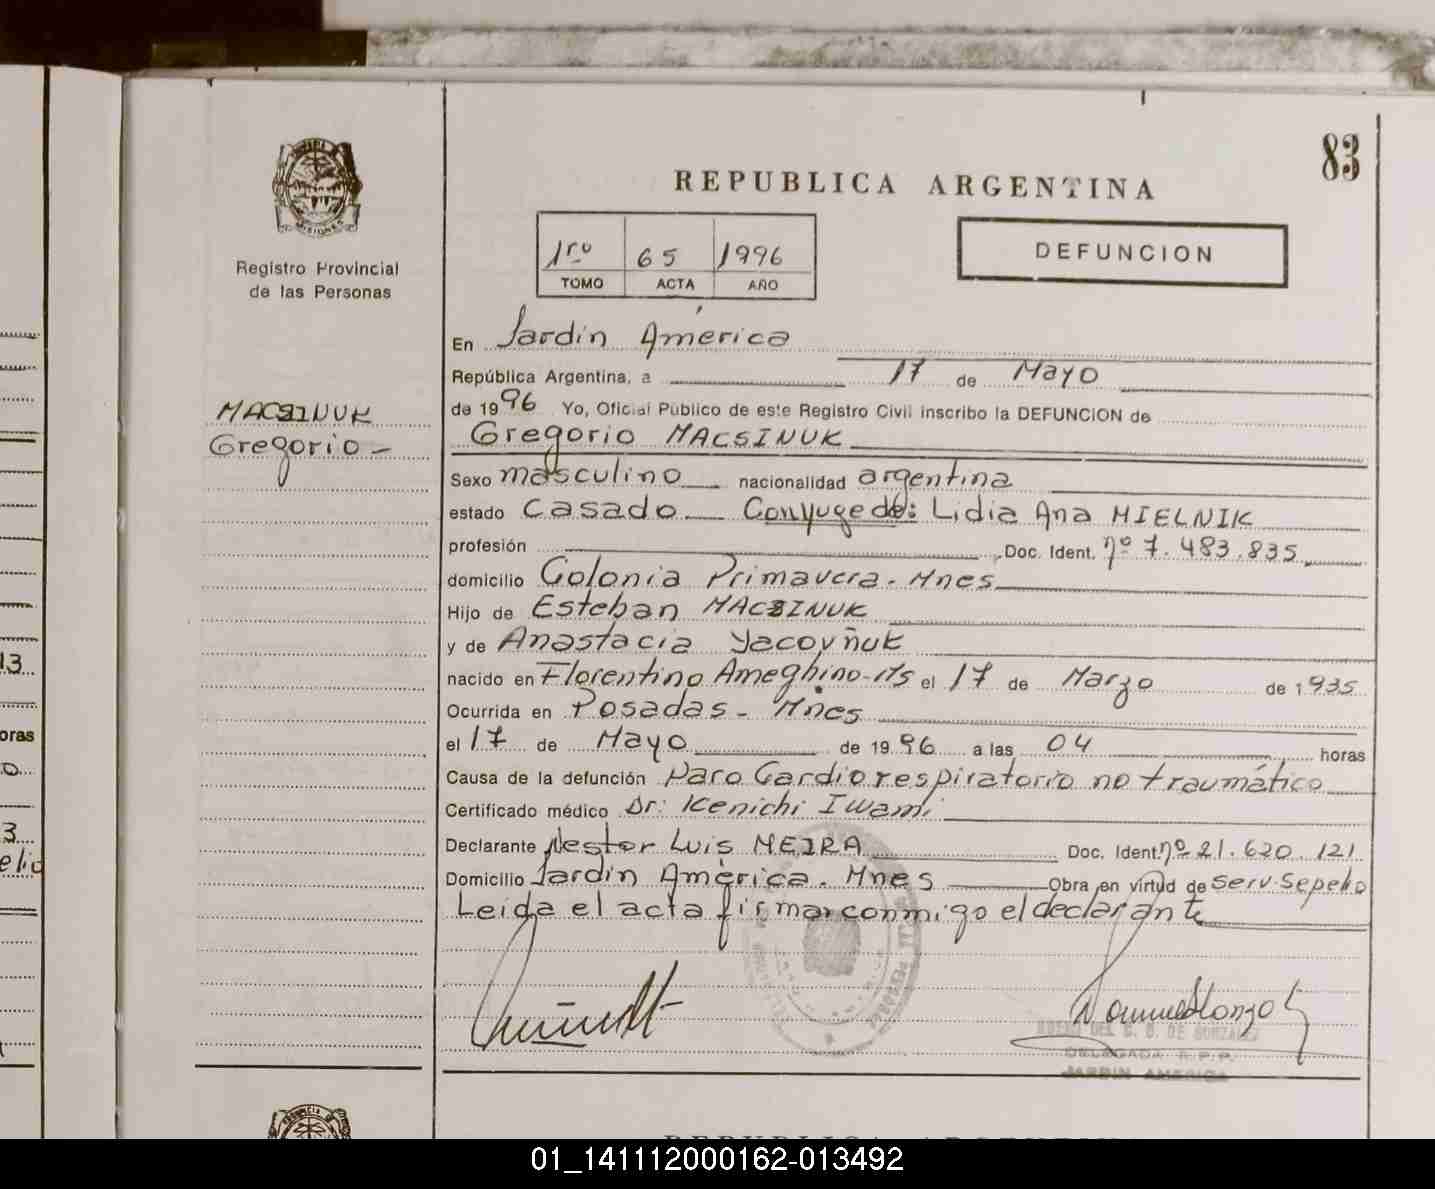 83
REPUBLICA ARGENTINA
MISIONES
Registro Provincial
de las Personas
1ro 65 1996
TOMO ACTA AÑO
DEFUNCION
MACSINUK
Gregorio -
En Jardín América
República Argentina, a 17 de Mayo
de 1996 Yo, Oficial Público de este Registro Civil inscribo la DEFUNCION de
Gregorio MACSINUK
Sexo masculino nacionalidad argentina
estado Casado Conyuge de: Lidia Ana MIELNIK
profesión Doc. Ident. nº 7.483.835
domicilio Colonia Primavera - Mnes
Hijo de Esteban MACSINUK
y de Anastacia Yacovñuk
nacido en Florentino Ameghino-Ms el 17 de Marzo de 1935
Ocurrida en Posadas - Mnes
el 17 de Mayo de 1996 a las 04 horas
Causa de la defunción Paro Cardiorespiratorio no traumático
Certificado médico Dr: Kenichi Iwami
Declarante Nestor Luis MEIRA Doc. Ident. nº 21.620.121
Domicilio Jardín América. Mnes Obra en virtud de Serv. Sepelio
Leida el acta firmar conmigo el declarante
DELEGADA R.P.P.
JARDIN AMERICA
13
oras
3
01_141112000162-013492